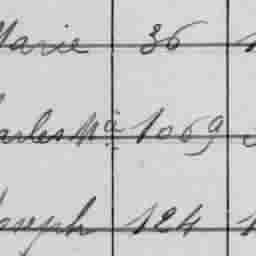 Marie 36
Charles Mia 1069
Joseph 124